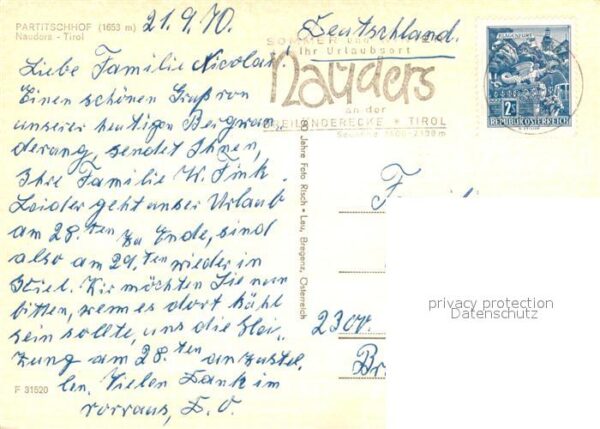 PARTITSCHHOF (1653 m)
Nauders - Tirol
21.9.70.
Deutschland.
SOMMER
Ihr Urlaubsort
Nauders
an der
DREILÄNDERECKE * TIROL
Liebe Familie Nicolai!
Einen schönen Gruß von
unserer heutigen Bergwan
derung, sendet Ihnen,
Ihre Familie W. Fink.
Leider geht unser Urlaub
am 28.ten zu Ende, sind
also am 29.ten wieder in
Kiel. Wir möchten Sie nun
bitten, wenn es dort kühl
sein sollte, uns die Hei-
zung am 28.ten anzustel
len. Vielen Dank im
vorraus, D. O.
F 31520
80 Jahre Foto Risch - Lau, Bregenz, Österreich
KLAGENFURT
2S
REPUBLIK ÖSTERREICH
2300
privacy protection
Datenschutz